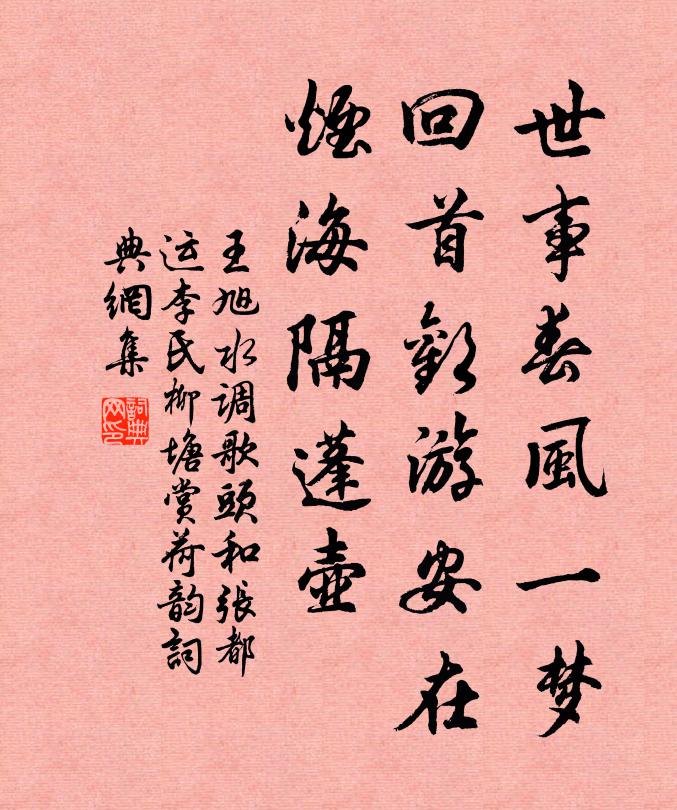 世事春風一梦
回首歡游安在
煙海隔蓬壺
王旭水调歌頭和張都
运李氏柳塘赏荷韵詞
典網集
詞典
网印